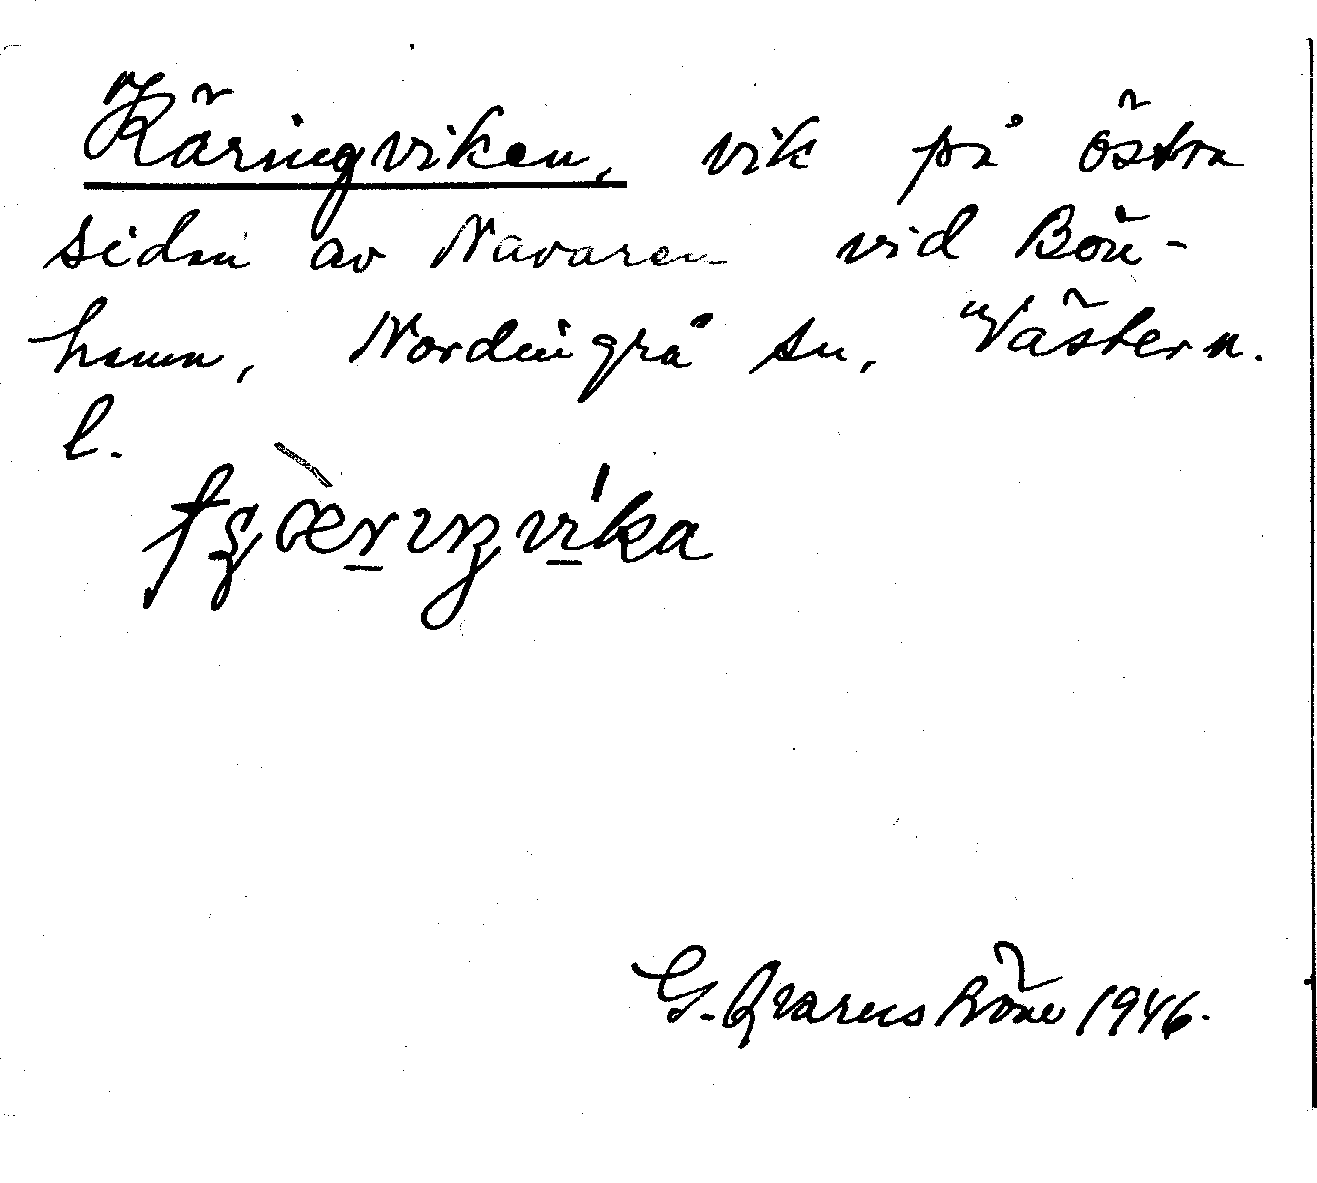 Käringviken, vik på östra
sidan av Navaren vid Bön-
hamn, Nordingrå sn, Västern.
l.
G. Qvarnström 1946.